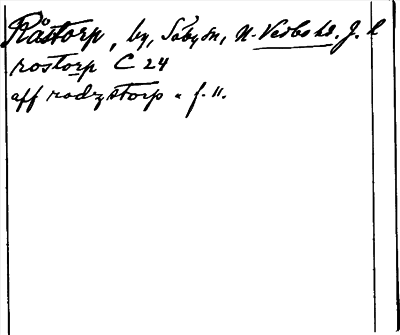 Råstorp, by, Säby sn, N. Vedbo hd. J. l
rostorp C 24
aff rodzstorp " f. 11.